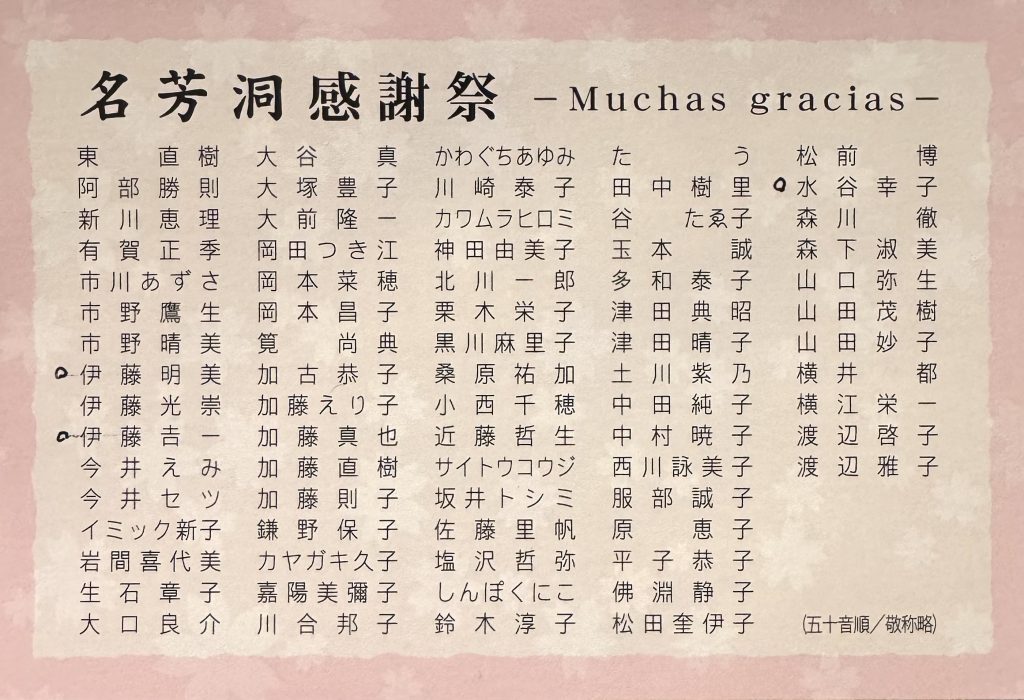 名芳洞感謝祭 －Muchas gracias－
東直樹
阿部勝則
新川恵理
有賀正季
市川あずさ
市野鷹生
市野晴美
伊藤明美
伊藤光崇
伊藤𠮷一
今井えみ
今井セツ
イミック新子
岩間喜代美
生石章子
大口良介
大谷真
大塚豊子
大前隆一
岡田つき江
岡本菜穂
岡本昌子
筧尚典
加古恭子
加藤えり子
加藤真也
加藤直樹
加藤則子
鎌野保子
カヤガキ久子
嘉陽美彌子
川合邦子
かわぐちあゆみ
川崎泰子
カワムラヒロミ
神田由美子
北川一郎
栗木栄子
黒川麻里子
桑原祐加
小西千穂
近藤哲生
サイトウコウジ
坂井トシミ
佐藤里帆
塩沢哲弥
しんぽくにこ
鈴木淳子
たう
田中樹里
谷たゑ子
玉本誠
多和泰子
津田典昭
津田晴子
土川紫乃
中田純子
中村暁子
西川詠美子
服部誠子
原恵子
平子恭子
佛淵静子
松田奎伊子
松前博
水谷幸子
森川徹
森下淑美
山口弥生
山田茂樹
山田妙子
横井都
横江栄一
渡辺啓子
渡辺雅子
(五十音順／敬称略)